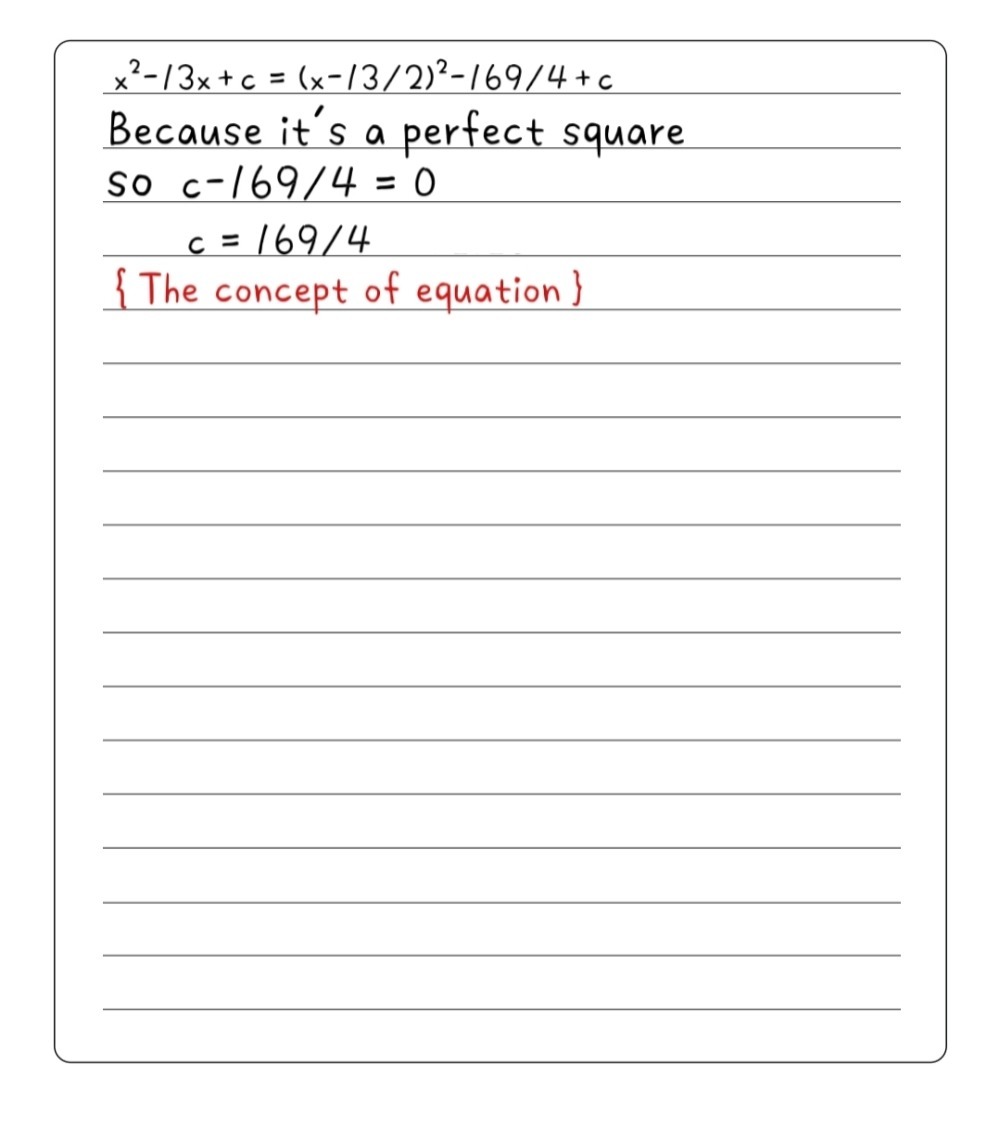 x²-13x+c = (x-13/2)²-169/4+c
Because it's a perfect square
so c-169/4 = 0
c = 169/4
{ The concept of equation }